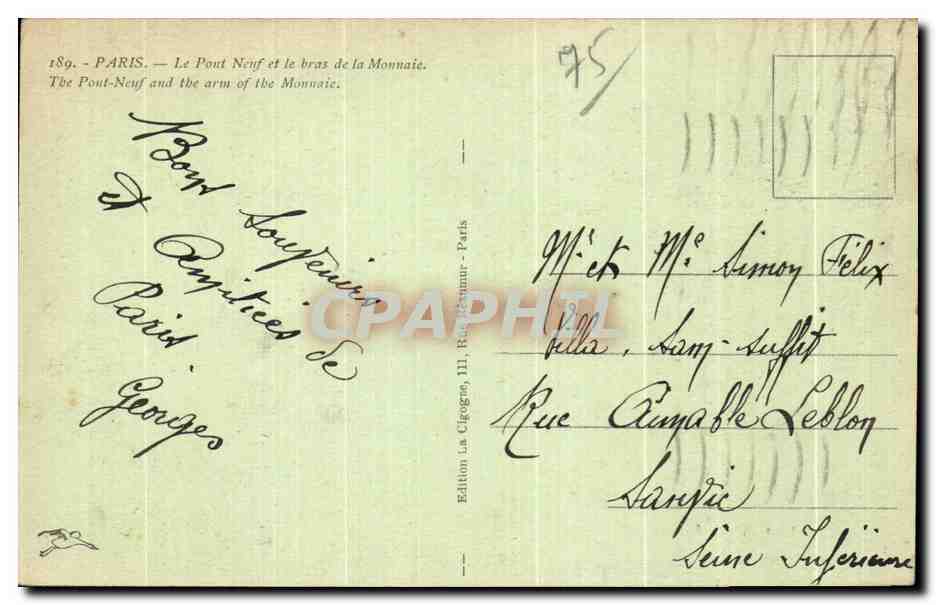 189. - PARIS. — Le Pont Neuf et le bras de la Monnaie.
The Pont-Neuf and the arm of the Monnaie.
75
Bons Souvenirs
et Amitiées de
Paris
Georges
Edition La Cigogne, 111, Rue Réaumur - Paris
Mr et Me Simon Félix
Villa. Sam-Suffit
Rue Aimable Leblon
Sanvic
Seine Inférieure
CPAPHIL